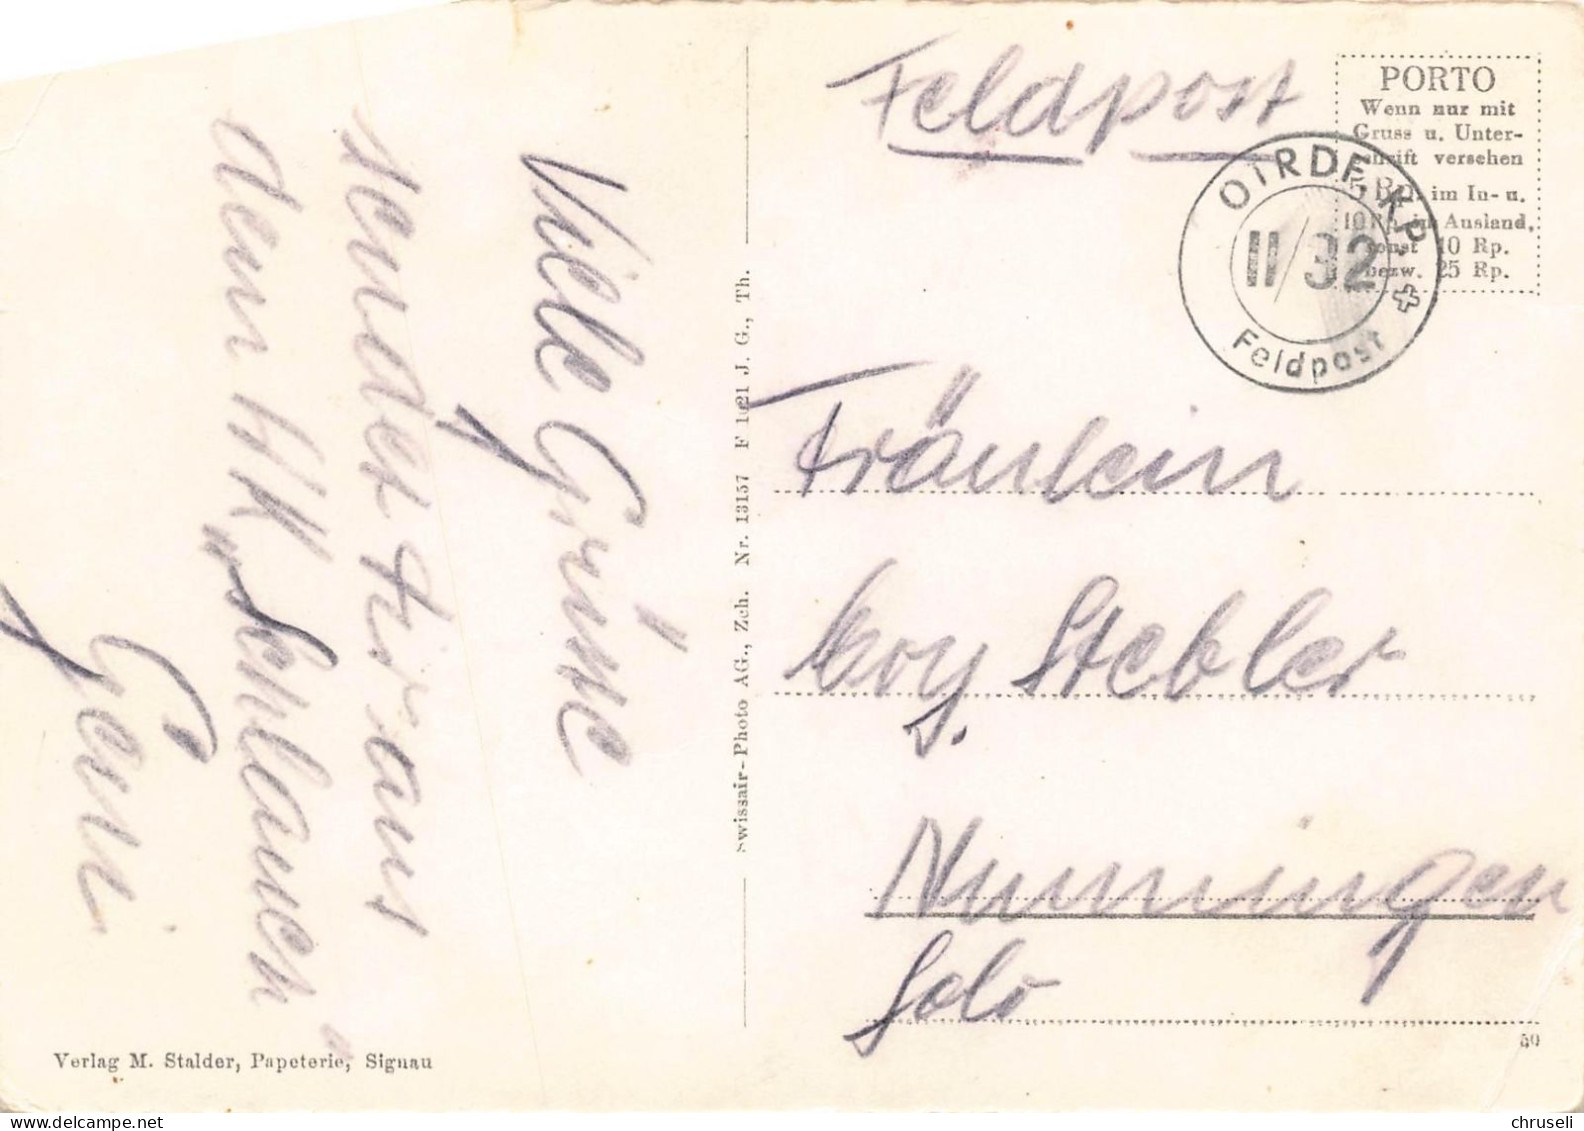 Viele Grüsse
sendet dir aus
dem HK „Schlauch"
Geni
Verlag M. Stalder, Papeterie, Signau
Swissair-Photo AG., Zch. Nr. 13157 F 1021 J. G., Th.
Feldpost
PORTO
Wenn nur mit
Gruss u. Unter-
schrift versehen
5 Rp. im In- u.
10 Rp. im Ausland,
sonst 10 Rp.
bezw. 25 Rp.
II/32
Feldpost
Fräulein
Stebler
Nunningen
Solo
40
chruseli